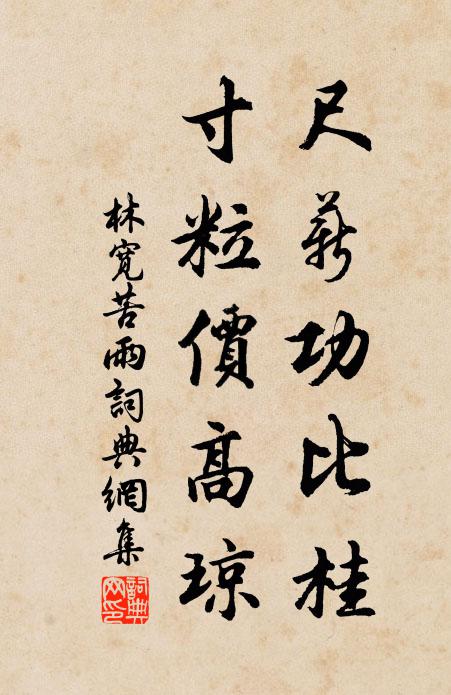 尺薪功比桂
寸粒價高琼
林寬苦雨詞典網集
詞典網印